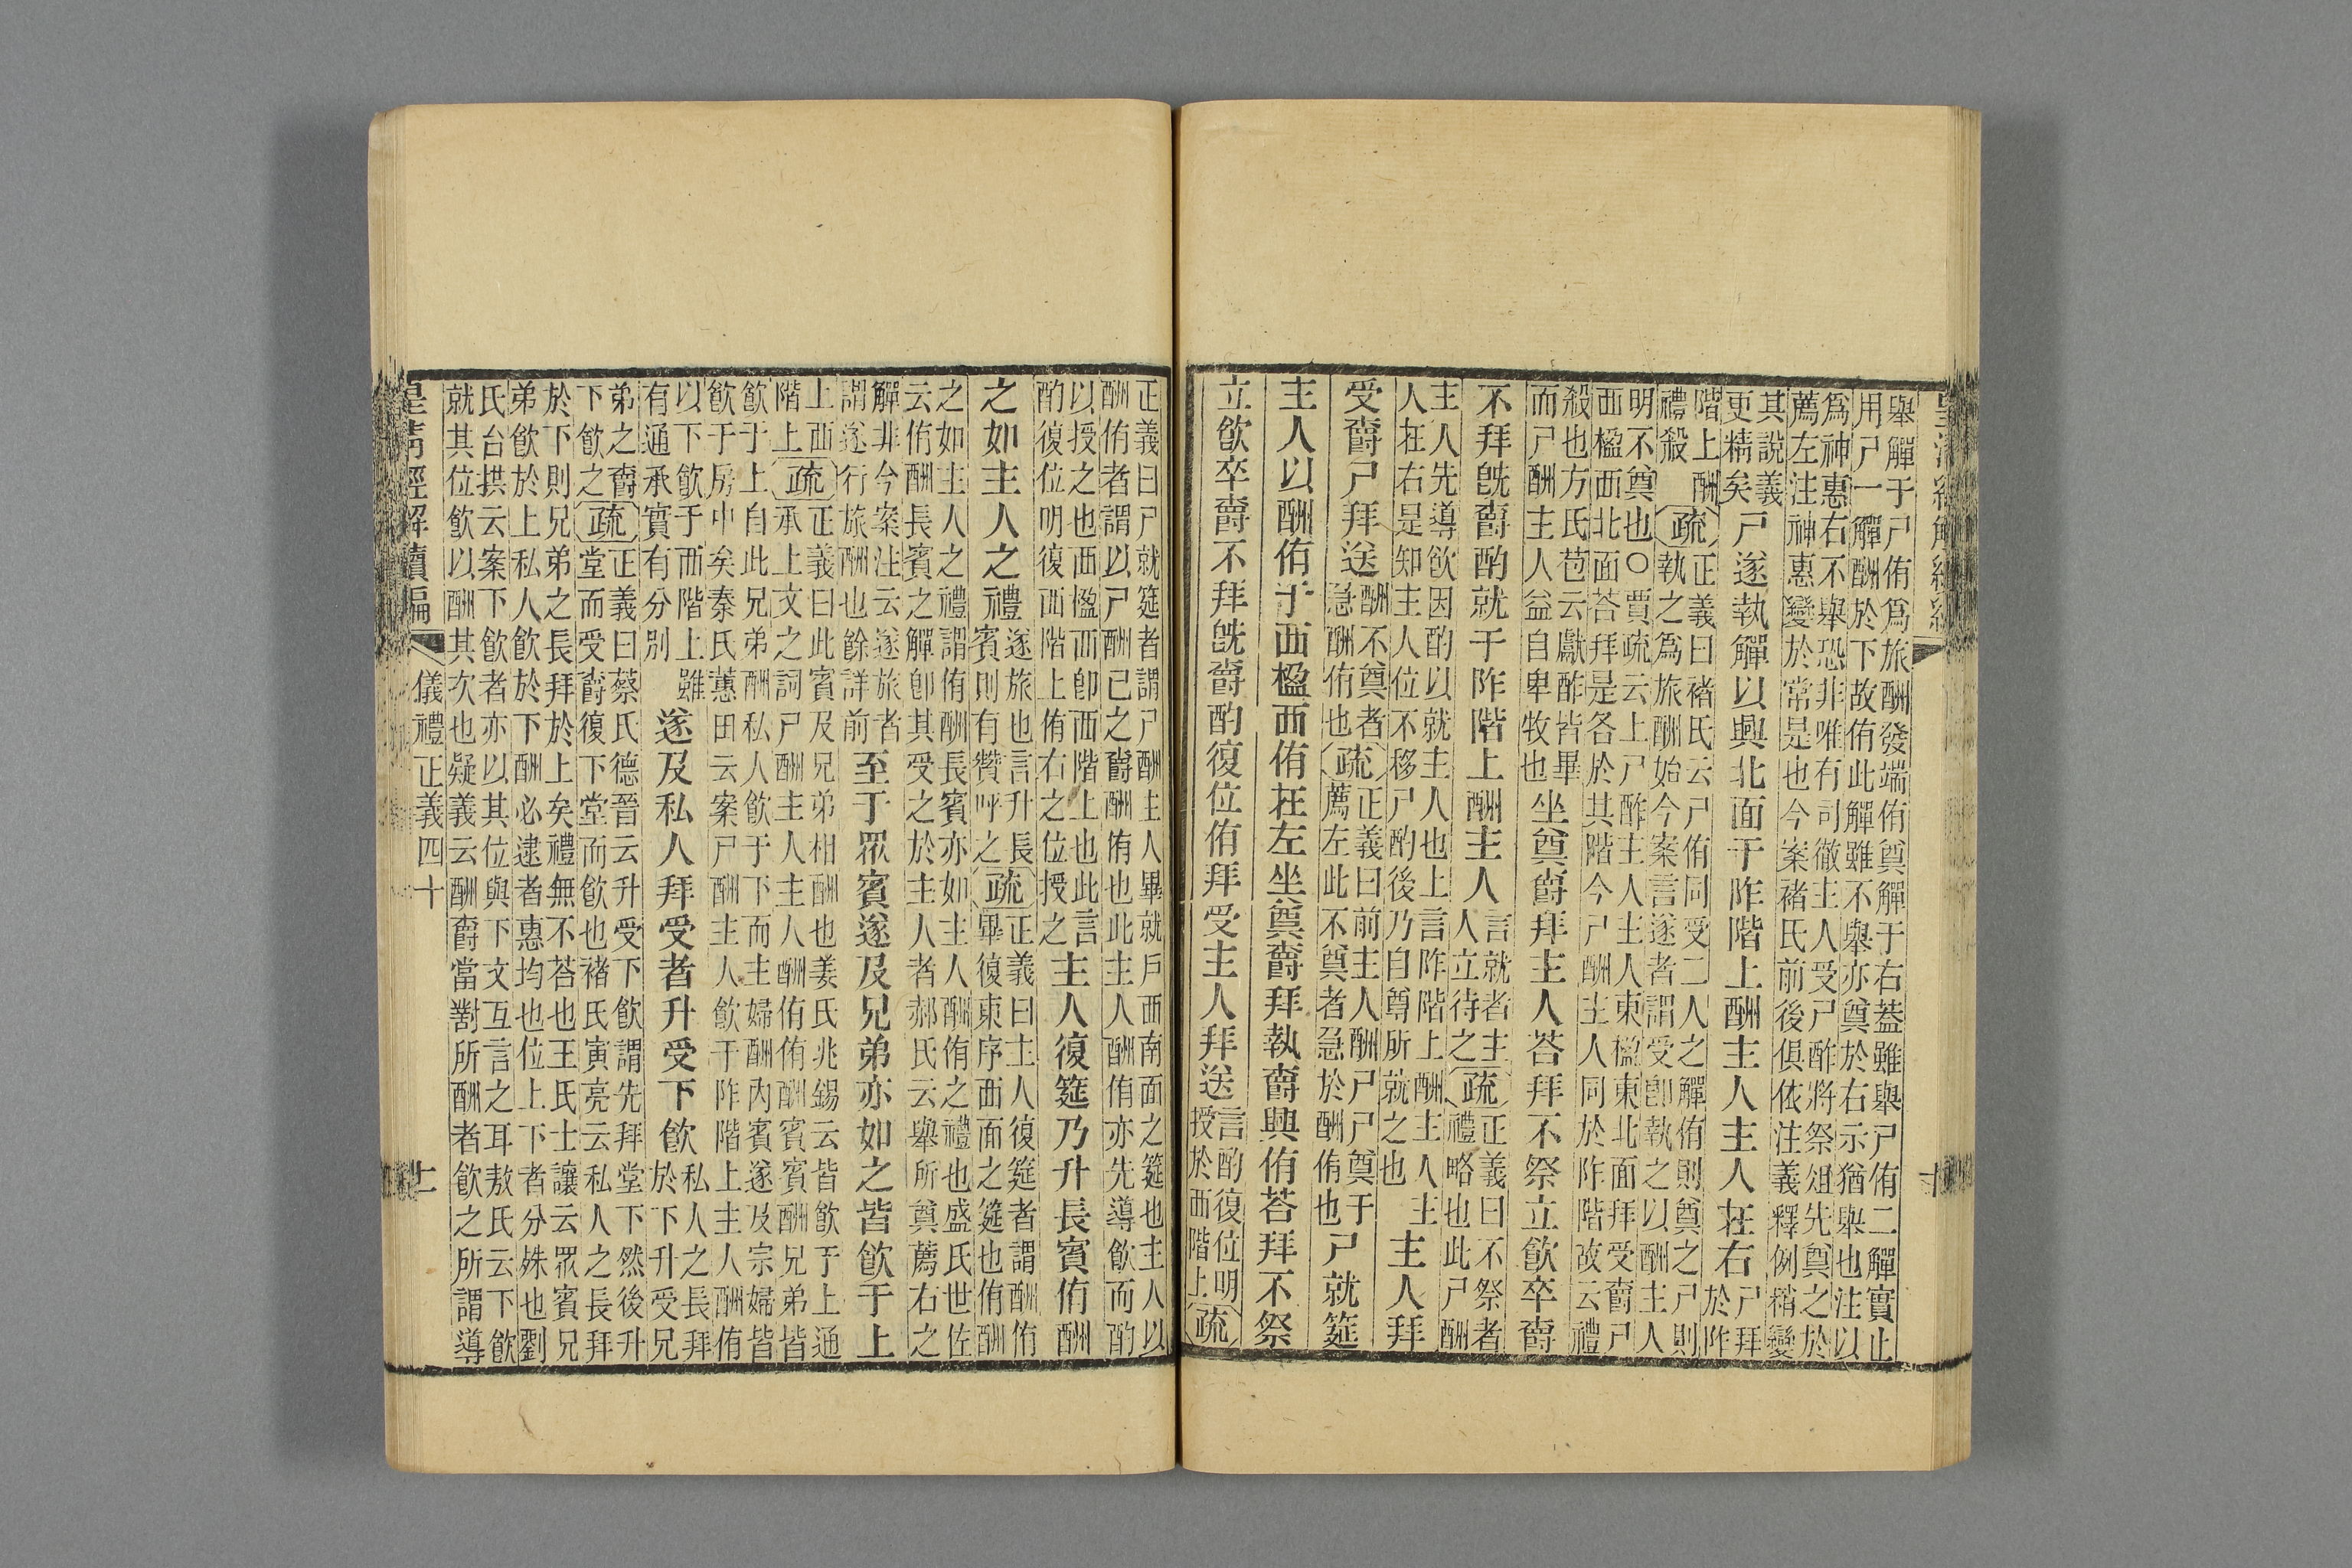 皇清經解續編
十
舉觶于尸侑爲旅酬發端侑奠觶于右蓋雖舉尸侑二觶實止
用尸一觶酬於下故侑此觶雖不舉亦奠於右示猶舉也注以
爲神惠右不舉恐非唯有司徹主人受尸酢將祭俎先奠之於
薦左注神惠變於常是也今案褚氏前後俱依注義釋例稍變
其說義
更精矣
尸遂執觶以興北面于阼階上酬主人主人在右
尸拜
於阼
階上酬
禮殺
疏
正義曰褚氏云尸侑同受二人之觶侑則奠之尸則
執之爲旅酬始今案言遂者謂受卽執之以酬主人
明不奠也○賈疏云上尸酢主人主人東楹東北面拜受爵尸
西楹西北面荅拜是各於其階今尸酬主人同於阼階故云禮
殺也方氏苞云獻酢皆畢
而尸酬主人益自卑牧也
坐奠爵拜主人荅拜不祭立飮卒爵
不拜旣爵酌就于阼階上酬主人
言就者主
人立待之
疏
正義曰不祭者
禮略也此尸酬
主人先導飮因酌以就主人也上言阼階上酬主人主
人在右是知主人位不移尸酌後乃自尊所就之也
主人拜
受爵尸拜送
酬不奠者
急酬侑也
疏
正義曰前主人酬尸尸奠于
薦左此不奠者急於酬侑也
尸就筵
主人以酬侑于西楹西侑在左坐奠爵拜執爵興侑荅拜不祭
立飮卒爵不拜旣爵酌復位侑拜受主人拜送
言酌復位明
授於西階上
疏
正義曰尸就筵者謂尸酬主人畢就戶西南面之筵也主人以
酬侑者謂以尸酬已之爵酬侑也此主人酬侑亦先導飮而酌
以授之也西楹西卽西階上也此言
酌復位明復西階上侑右之位授之
主人復筵乃升長賓侑酬
之如主人之禮
遂旅也言升長
賓則有贊呼之
疏
正義曰主人復筵者謂酬侑
畢復東序西面之筵也侑酬
之如主人之禮謂侑酬長賓亦如主人酬侑之禮也盛氏世佐
云侑酬長賓之觶卽其受之於主人者郝氏云舉所奠薦右之
觶非今案注云遂旅者
謂遂行旅酬也餘詳前
至于眾賓遂及兄弟亦如之皆飮于上
上西
階上
疏
正義曰此賓及兄弟相酬也姜氏兆錫云皆飮于上通
承上文之詞尸酬主人主人酬侑侑酬賓賓酬兄弟皆
飮于上自此兄弟酬私人飮于下而主婦酬內賓遂及宗婦皆
飮于房中矣秦氏蕙田云案尸酬主人飮于阼階上主人酬侑
以下飮于西階上雖
有通承實有分別
遂及私人拜受者升受下飮
私人之長拜
於下升受兄
弟之爵
下飮之
疏
正義曰蔡氏德晉云升受下飮謂先拜堂下然後升
堂而受爵復下堂而飮也褚氏寅亮云私人之長拜
於下則兄弟之長拜於上矣禮無不荅也王氏士讓云眾賓兄
弟飮於上私人飮於下酬必逮者惠均也位上下者分殊也劉
氏台拱云案下飮者亦以其位與下文互言之耳敖氏云下飮
就其位飮以酬其次也疑義云酬爵當對所酬者飮之所謂導
皇清經解續編
儀禮正義四十